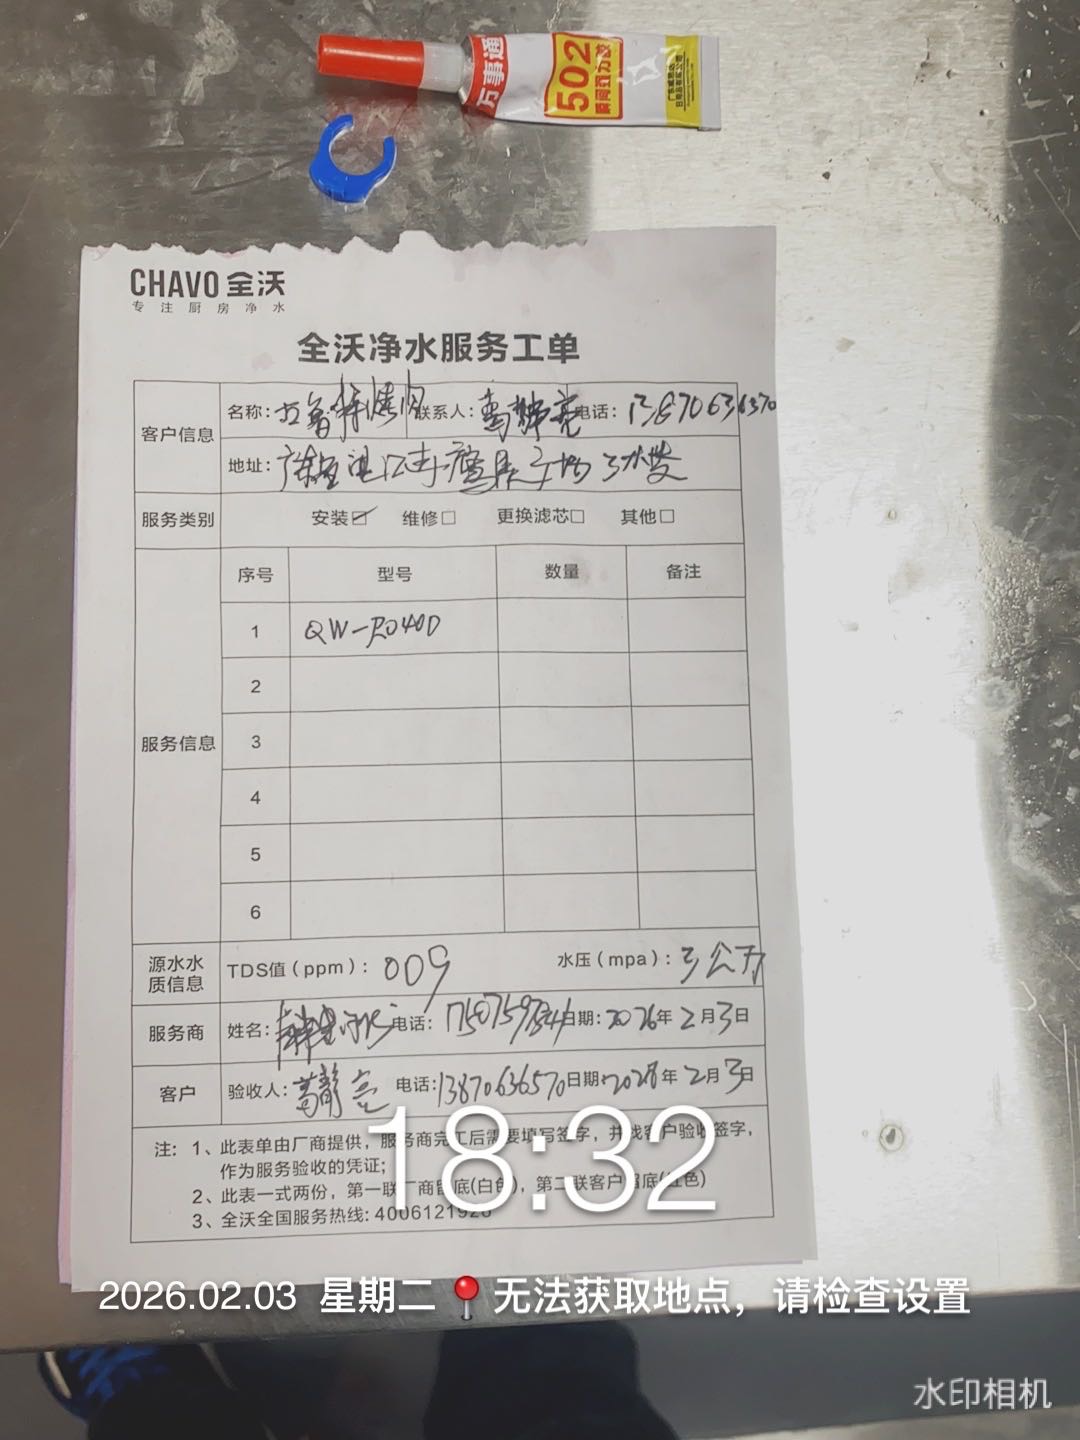 万事通
502
瞬间强力胶
CHAVO 全沃
专注厨房净水
全沃净水服务工单
客户信息
名称: 联系人: 电话:
地址:
服务类别 安装☑ 维修□ 更换滤芯□ 其他□
服务信息
序号 型号 数量 备注
1 QW-RO40D
2
3
4
5
6
源水水质信息 TDS值(ppm): 009 水压(mpa): 3公斤
服务商 姓名: 电话: 日期: 2026年2月3日
客户 验收人: 电话: 13870636570 日期: 年2月3日
注: 1、此表单由厂商提供, 服务商完工后需要填写签字, 并找客户验收签字,
作为服务验收的凭证;
2、此表一式两份, 第一联厂商留底(白色), 第二联客户留底(红色)
3、全沃全国服务热线: 4006121928
18:32
2026.02.03 星期二 📍无法获取地点，请检查设置
水印相机